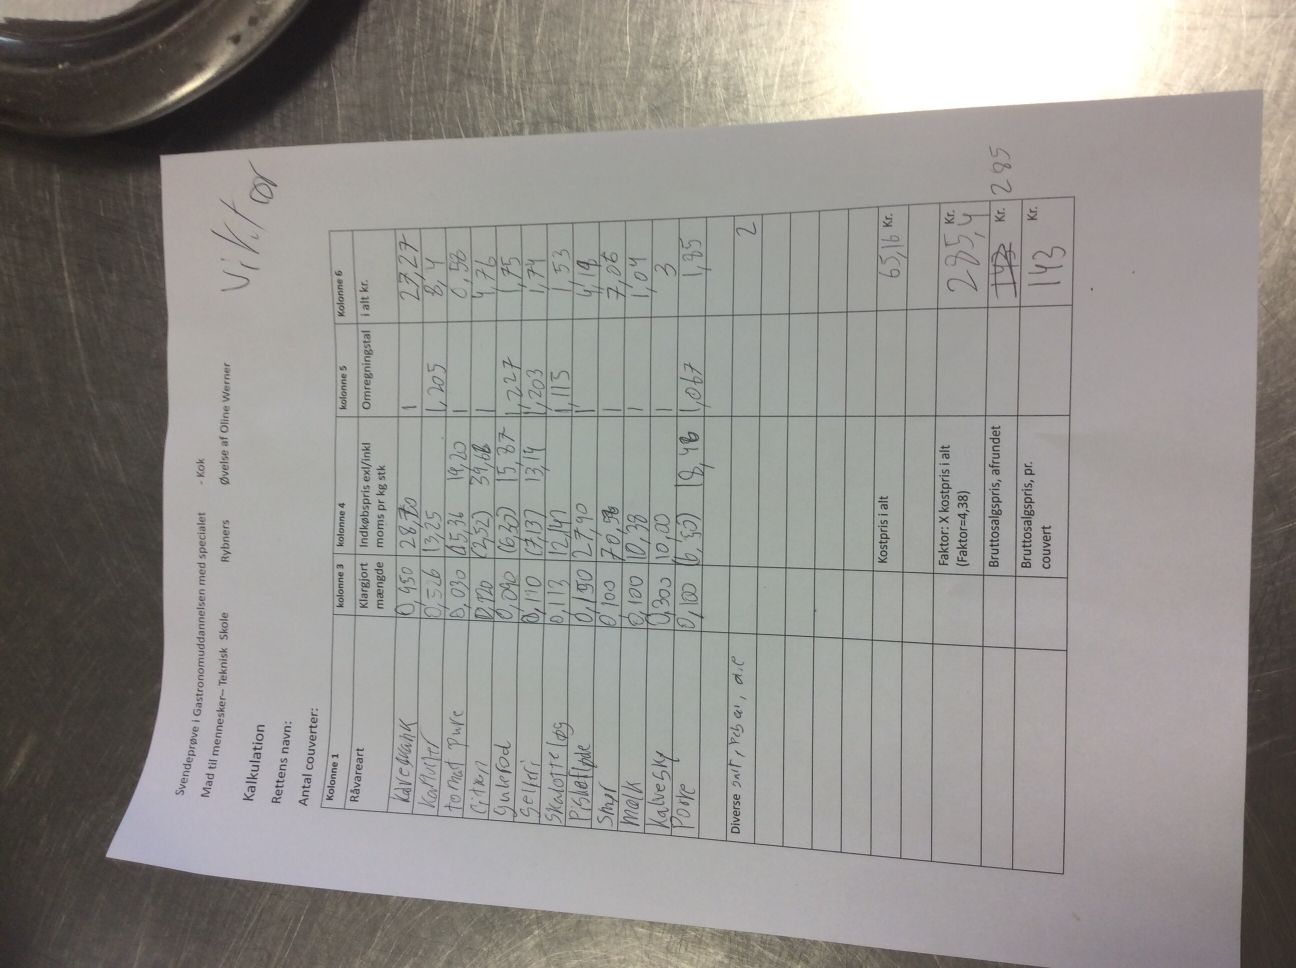 Viktor
Svendeprøve i Gastronomuddannelsen med specialet - Kok
Mad til mennesker– Teknisk Skole Rybners Øvelse af Oline Werner
Kalkulation
Rettens navn:
Antal couverter:
Kolonne 1 kolonne 3 kolonne 4 kolonne 5 Kolonne 6
Råvareart Klargjort mængde Indkøbspris exl/inkl moms pr kg stk Omregningstal i alt kr.
0,450 1 27,27
Kartofler 0,526 13,25 1,205 8,4
tomat pure 0,030 (15,36 19,20 1 0,58
Citron (2,52) 39,68 1 4,76
gulerod 0,090 15,87 1,227 1,75
Selleri 0,110 (7,137 13,14 1,203 1,74
Skalotteløg 0,113 12,141 1,115 1,53
Piskefløde 0,150 27,90 1 4,18
Smør 0,100 70,56 1 7,06
mælk 0,100 10,38 1 1,04
Kalvesky 0,300 10,00 1 3
Porre 0,100 (6,50) 18,48 1,067 1,85
Diverse salt, peber, 2
Kostpris i alt 65,16 Kr.
Faktor: X kostpris i alt 285,4 Kr.
(Faktor=4,38)
Bruttosalgspris, afrundet 143 Kr. 285
Bruttosalgspris, pr. 143 Kr.
couvert